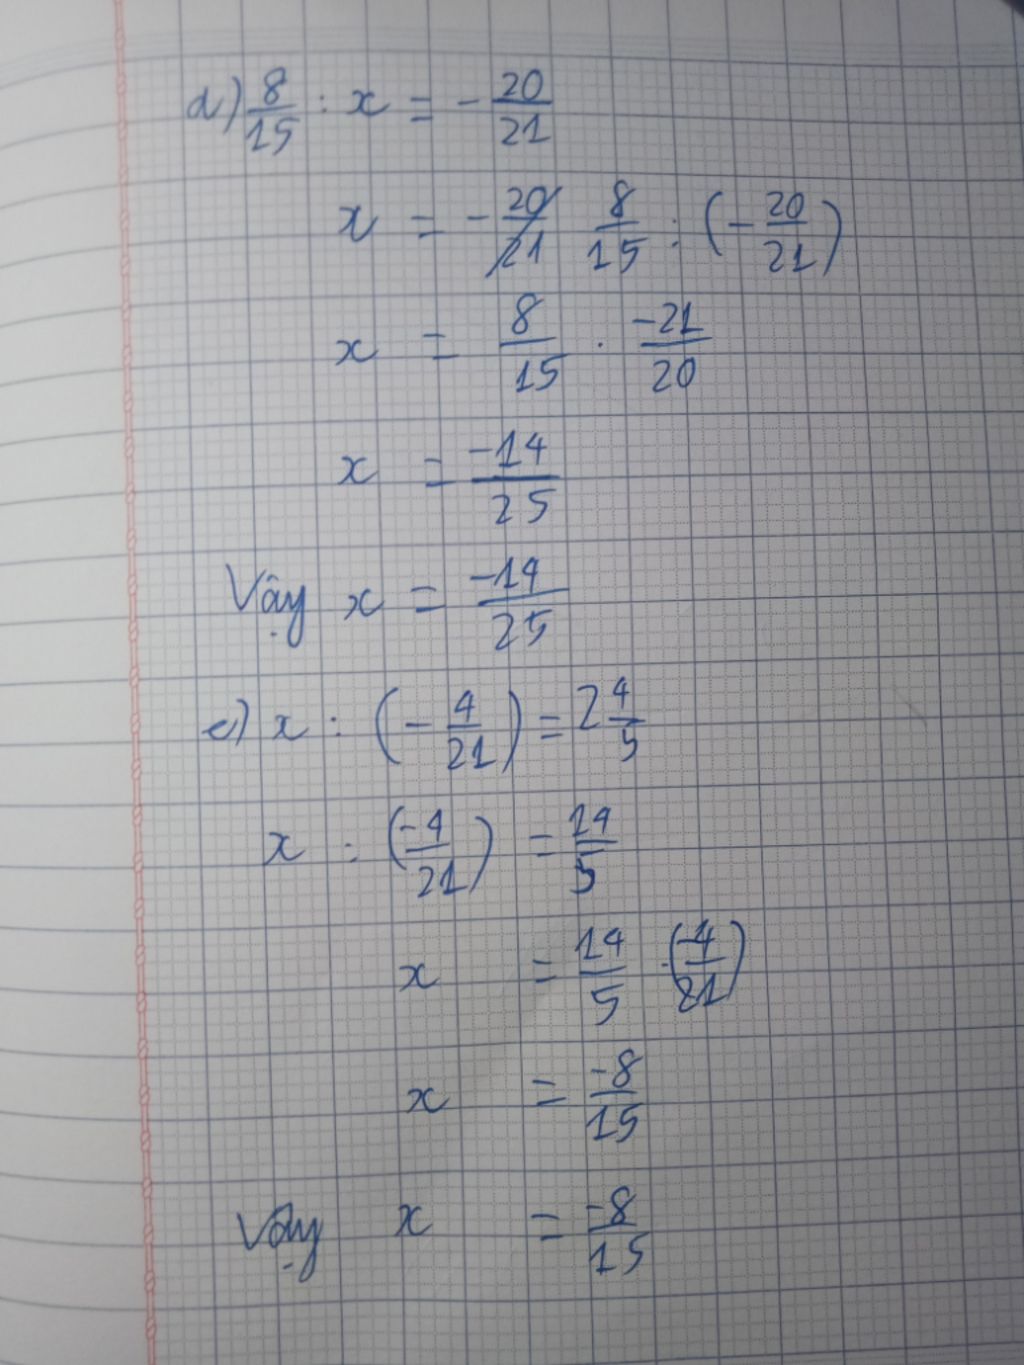 d) 8/15 : x = - 20/21
x = - 20/21 8/15 : (- 20/21)
x = 8/15 . -21/20
x = -14/25
Vậy x = -14/25
e) x : (- 4/21) = 2 4/5
x : (-4/21) = 14/5
x = 14/5 . (-4/21)
x = -8/15
Vậy x = -8/15